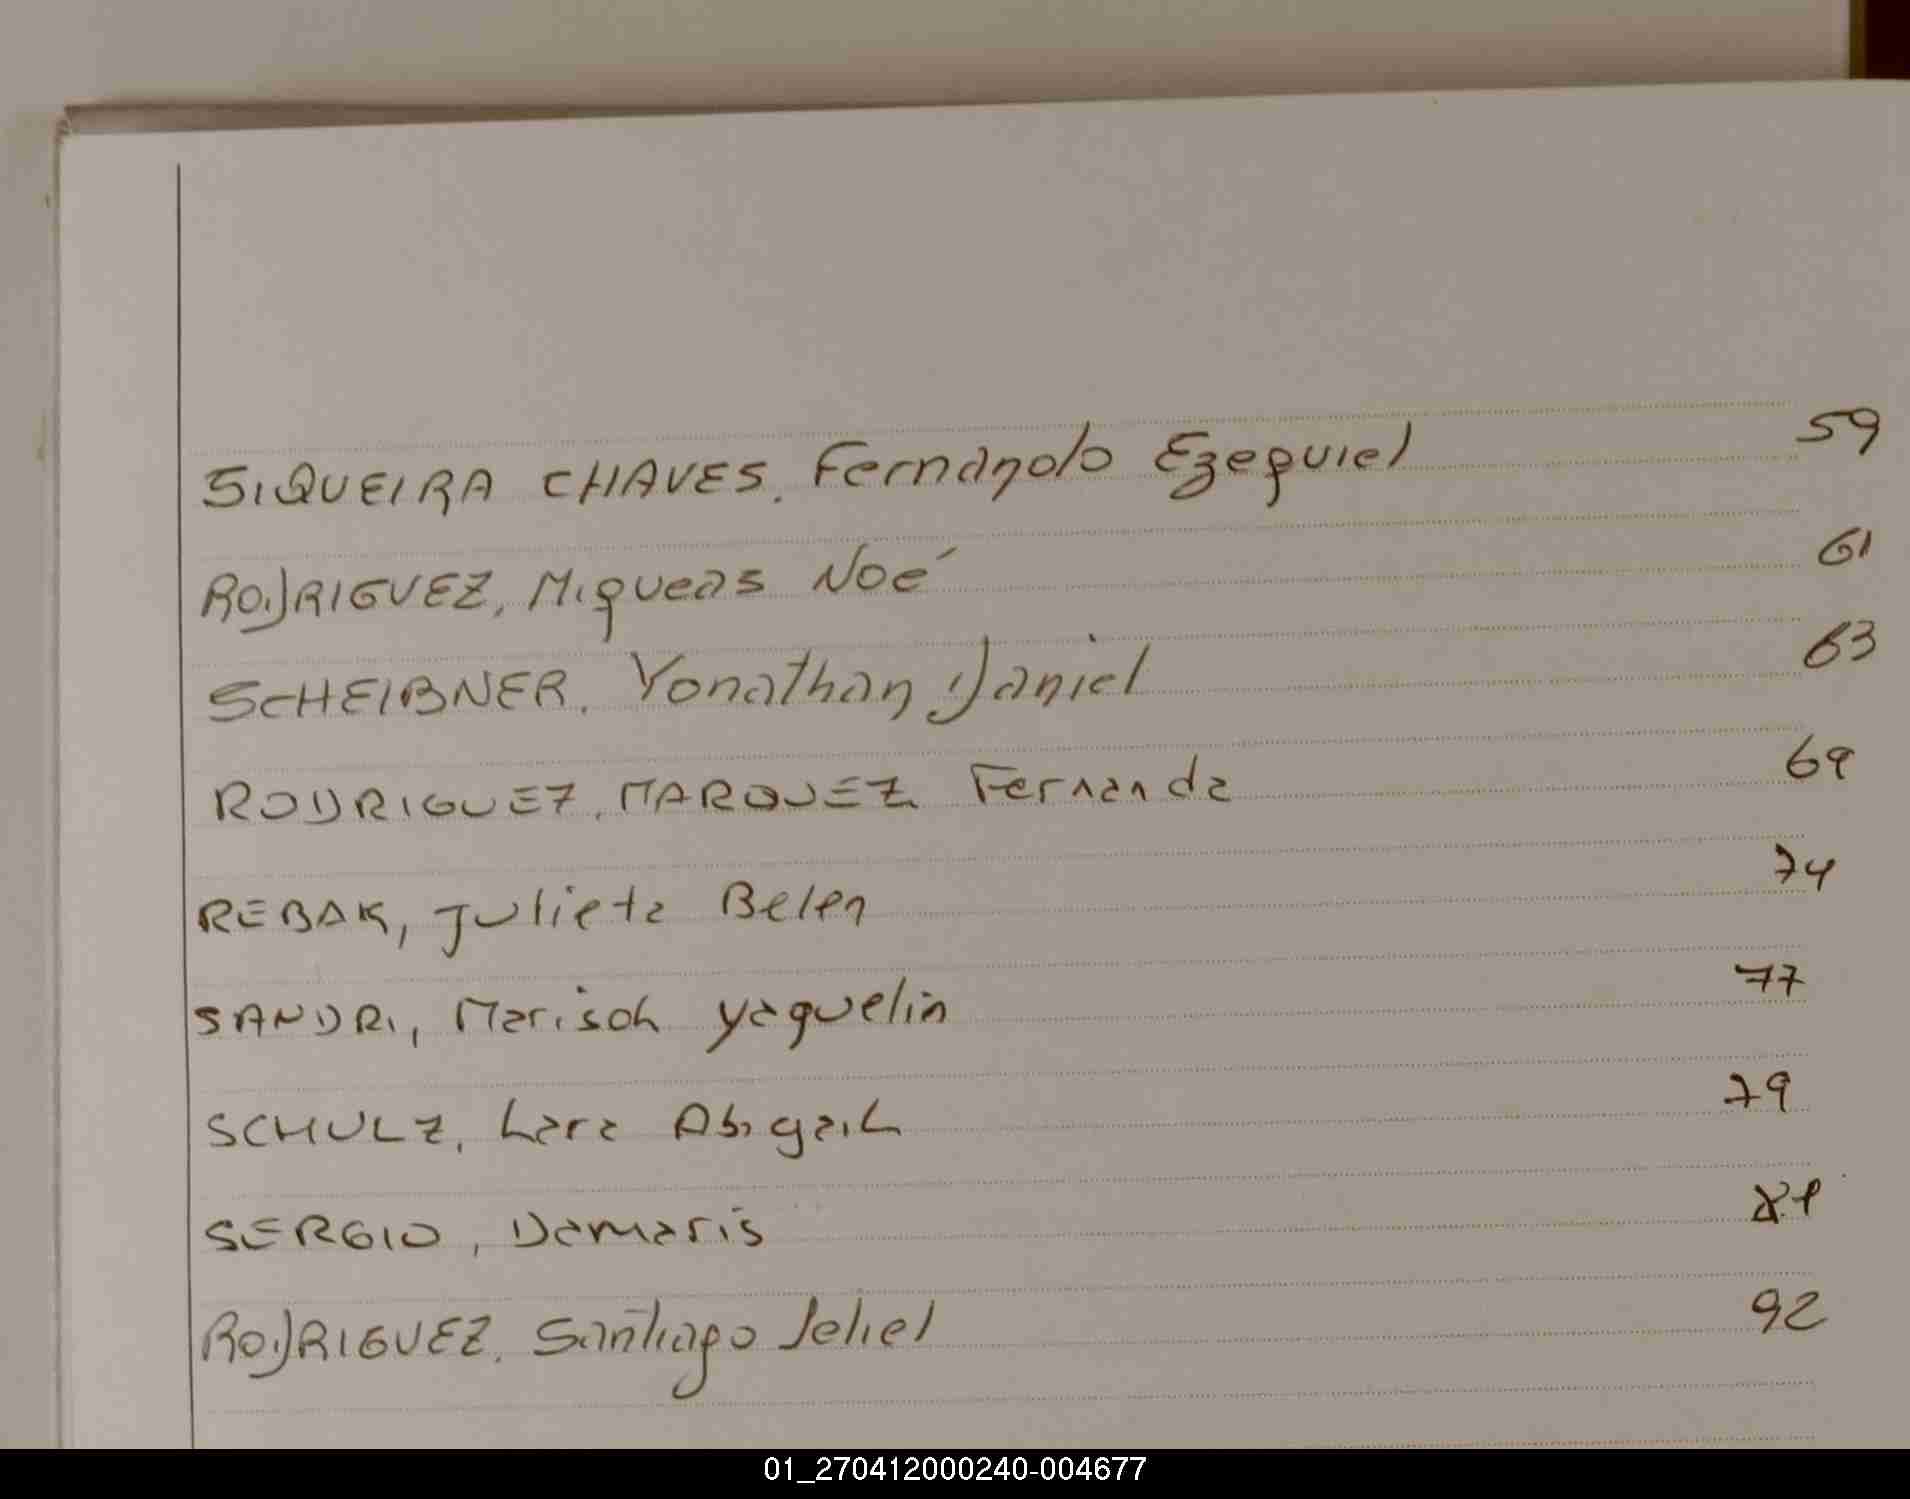 SIQUEIRA CHAVES, Fernando Ezequiel 59
RODRIGUEZ, Miqueas Noé 61
SCHEIBNER, Yonathan Daniel 63
RODRIGUEZ, MARQUEZ Fernanda 69
REBAK, Julieta Belen 74
SANDRI, Marisol Yaquelin 77
SCHULZ, Lara Abigail 79
SERGIO, Damaris
RODRIGUEZ, Santiago Jehiel 92
01_270412000240-004677